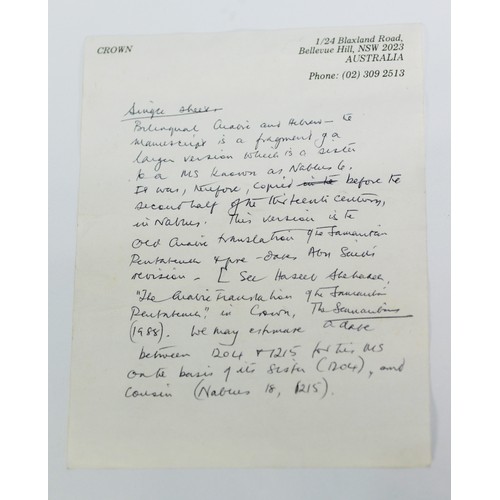 CROWN
1/24 Blaxland Road,
Bellevue Hill, NSW 2023
AUSTRALIA
Phone: (02) 309 2513
Single sheet
Bilingual Arabic and Hebrew – the
manuscript is a fragment of a
larger version which is a sister
to a MS known as Nablus 6.
It was, therefore, copied before the
second half of the thirteenth century,
in Nablus. This version is the
Old Arabic translation of the Samaritan
Pentateuch & pre-dates Abu Said's
revision – [See Haseeb Shehadeh,
"The Arabic translation of the Samaritan
Pentateuch," in Crown, The Samaritans
(1988). We may estimate a date
between 1204 & 1215 for this MS
on the basis of its sister (1204), and
cousin (Nablus 18, 1215).